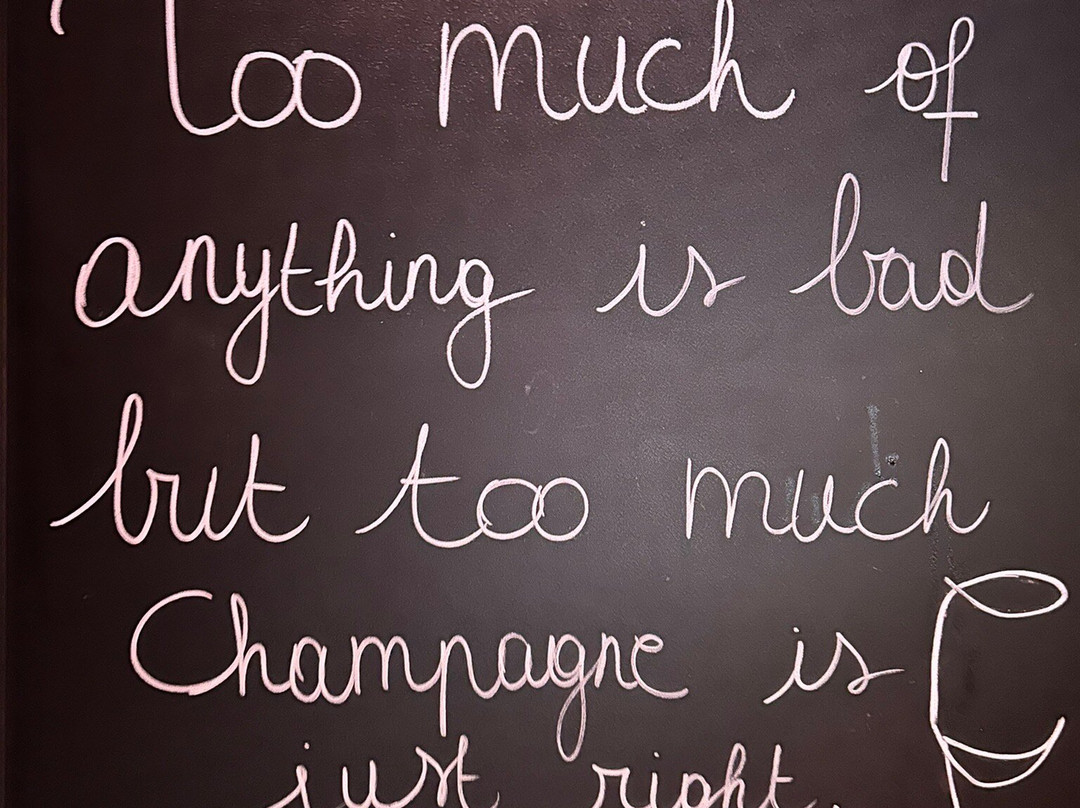 Too much of
anything is bad
but too much
Champagne is
just right.